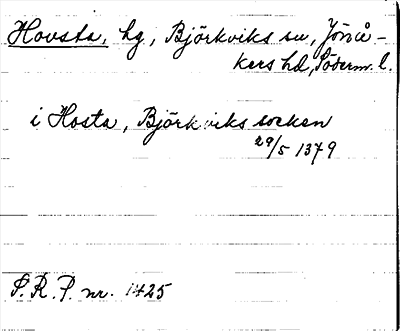 Hovsta, hg, Björkviks sn, Jönå-
kers hd, Söderm. l.
i Hosta, Björkviks socken
29/5 1379
S.R.P. nr. 1425